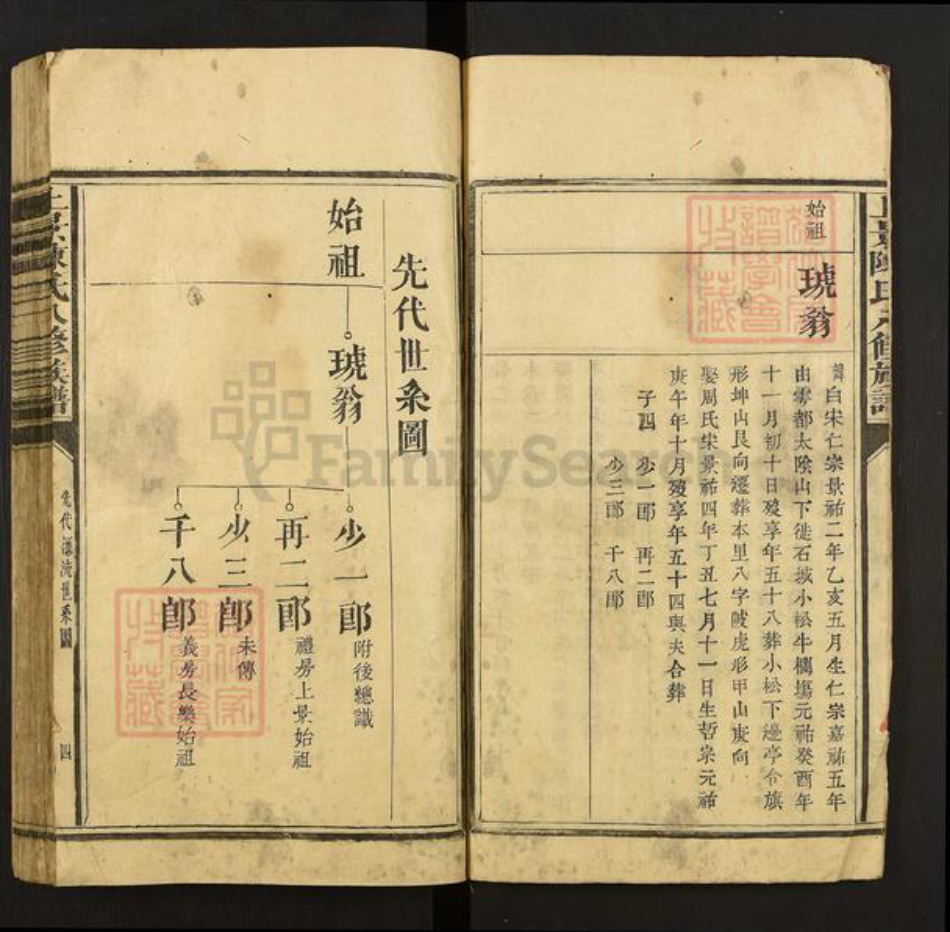 上景陳氏八修族譜
始祖
琥翁
諱白宋仁宗景祐二年乙亥五月生仁宗嘉祐五年
由雩都太陰山下徙石城小松牛欄塲元祐癸酉年
十一月初十日殁享年五十八葬小松下邊亭令旗
形坤山艮向遷葬本里八字陂虎形甲山庚向
娶周氏宋景祐四年丁丑七月十一日生哲宗元祐
庚午年十月殁享年五十四與夫合葬
子四 少一郎 再二郎
少三郎 千八郎
先代世系圖
始祖
琥翁
少一郎 附後總識
再二郎 禮房上景始祖
少三郎 未傳
千八郎 義房長樂始祖
上景陳氏八修族譜
先代源流世系圖
四
收藏
譜學會
FamilySearch